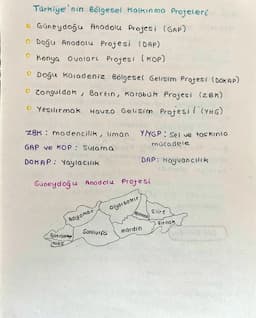 Türkiye'nin Bölgesel Kalkınma Projeleri
Güneydoğu Anadolu Projesi (GAP)
Doğu Anadolu Projesi (DAP)
Konya Ovaları Projesi (KOP)
Doğu Karadeniz Bölgesel Gelişim Projesi (DOKAP)
Zonguldak, Bartın, Karabük Projesi (ZBK)
Yeşilırmak Havza Gelişim Projesi (YHG)
ZBK: madencilik, liman
YHGP: Sel ve taşkınla mücadele
GAP ve KOP: Sulama
DOKAP: Yaylacılık
DAP: Hayvancılık
Güneydoğu Anadolu Projesi
Adıyaman
Diyarbakır
Batman
Siirt
Şırnak
Gaziantep
Şanlıurfa
Mardin
Kilis